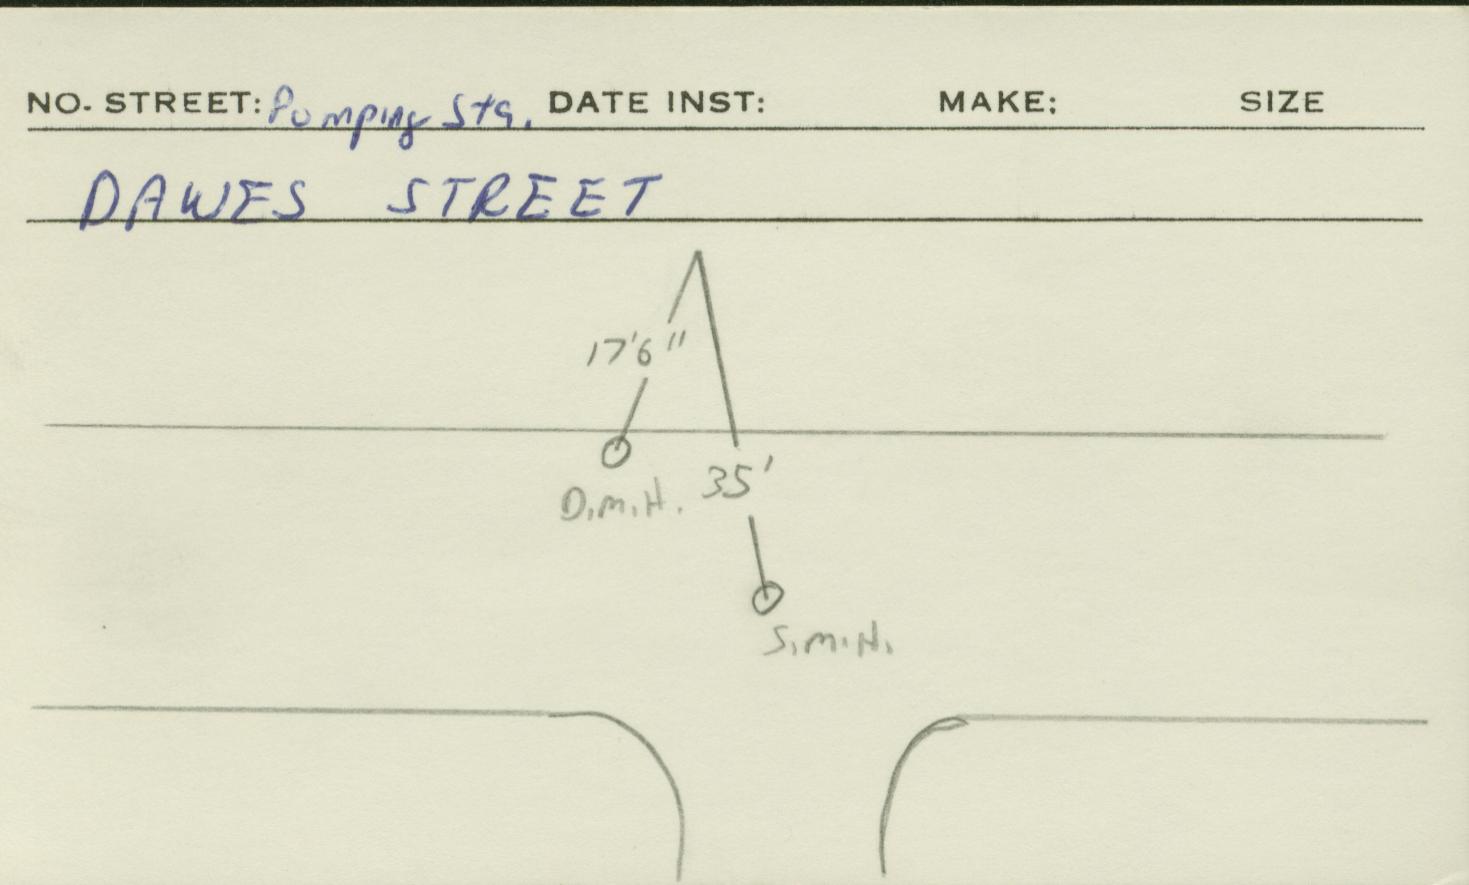 NO. STREET: Pumping Sta. DATE INST: MAKE: SIZE
DAWES STREET
17'6"
D.M.H. 35'
S.M.H.